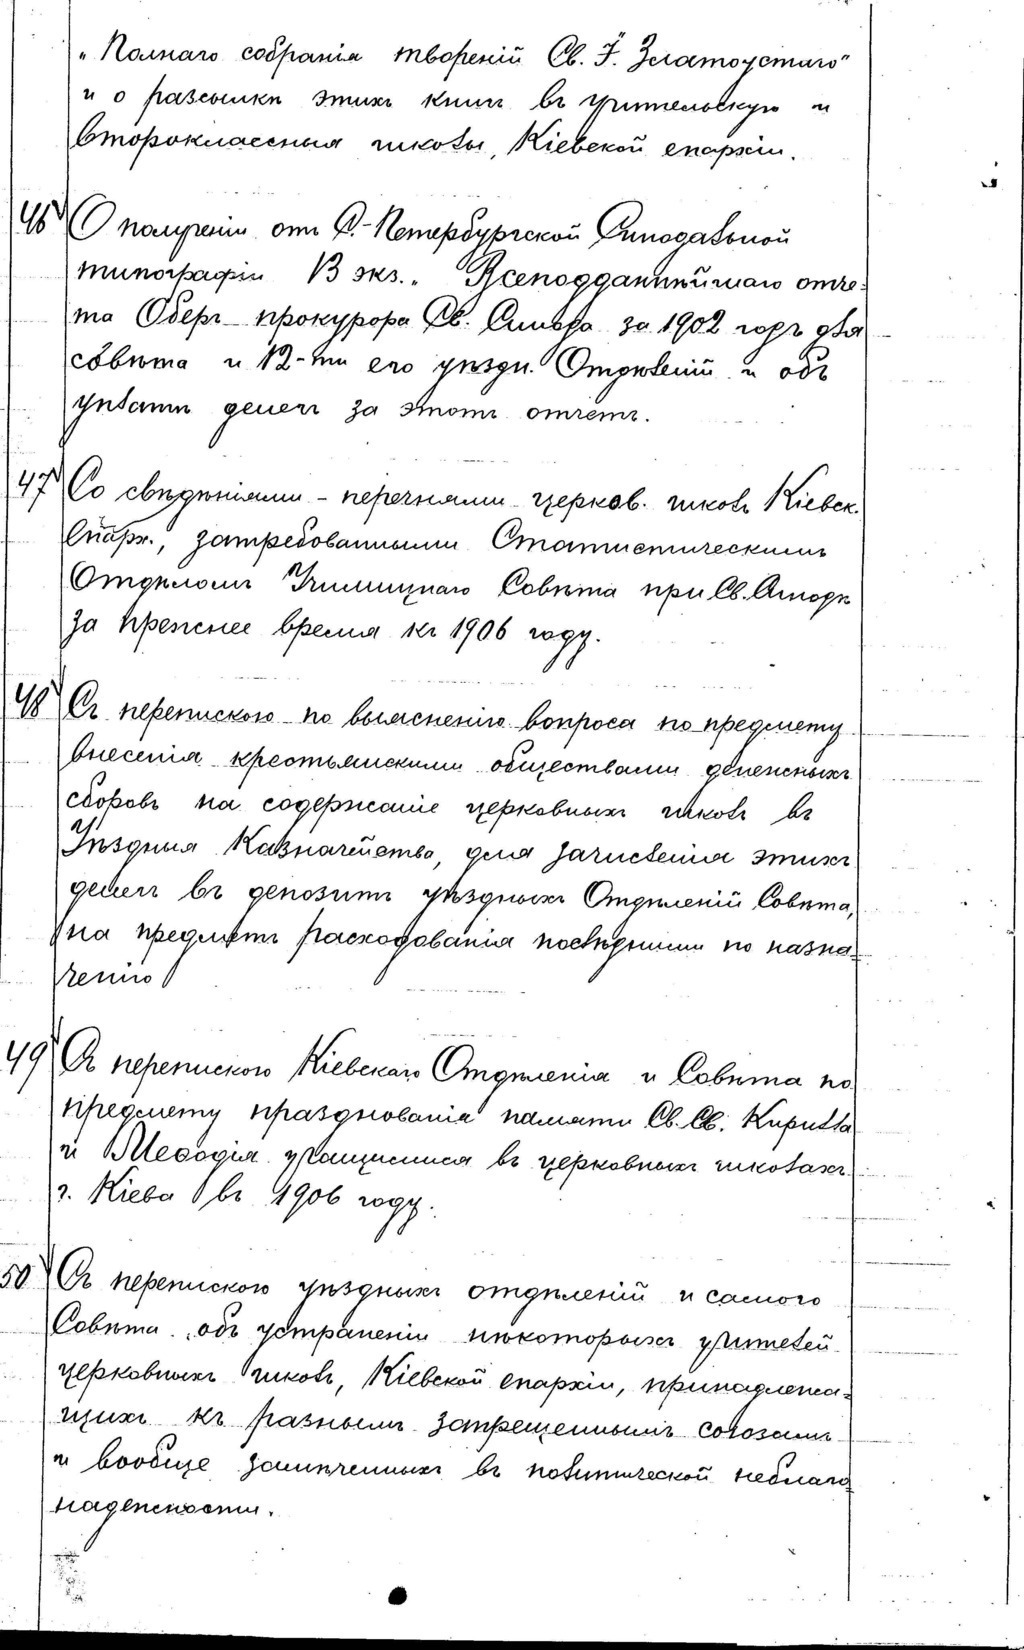 „Полнаго собранія твореній Св. І. Златоустаго"
и о разсылкѣ этихъ книгъ въ учительскую и
второклассныя школы, Кіевской епархіи.
46 О полученіи отъ С.-Петербургской Синодальной
типографіи 13 экз. „Всеподданнѣйшаго отче-
та Оберъ-прокурора Св. Синода за 1902 годъ для
совѣта и 12-ти его уѣздн. Отдѣленій и объ
уплатѣ денегъ за этотъ отчетъ.
47 Со свѣдѣніями-перечнями церков. школъ Кіевск.
Епарх., затребованными Статистическимъ
Отдѣломъ Училищнаго Совѣта при Св. Синодѣ
за прежнее время къ 1906 году.
48 Съ перепискою по выясненію вопроса по предмету
внесенія крестьянскими обществами денежныхъ
сборовъ на содержаніе церковныхъ школъ въ
Уѣздныя Казначейства, для зачисленія этихъ
денегъ въ депозитъ уѣздныхъ Отдѣленій Совѣта,
на предметъ расходованія послѣдними по назна-
ченію
49 Съ перепискою Кіевскаго Отдѣленія и Совѣта по
предмету празднованія памяти Св. Св. Кирилла
и Меѳодія учащимися въ церковныхъ школахъ
г. Кіева въ 1906 году.
50 Съ перепискою уѣздныхъ отдѣленій и самого
Совѣта объ устраненіи нѣкоторыхъ учителей
церковныхъ школъ, Кіевской епархіи, принадлежа-
щихъ къ разнымъ запрещеннымъ союзамъ
и вообще замѣченныхъ въ политической неблаго
надежности.